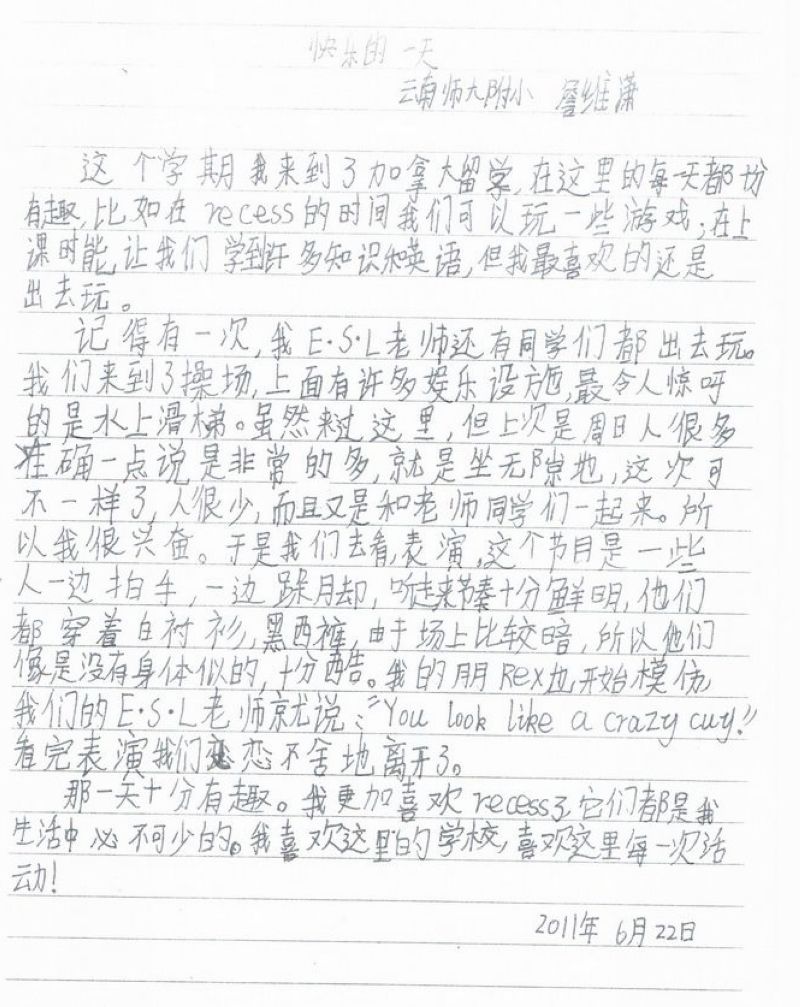 快乐的一天
云南师大附小 詹维潇
这个学期我来到了加拿大留学,在这里的每一天都
有趣,比如在recess的时间我们可以玩一些游戏;在上
课时能让我们学到许多知识和英语,但我最喜欢的还是
出去玩。
记得有一次,我E·S·L老师还有同学们都出去玩。
我们来到了操场,上面有许多娱乐设施,最令人惊呀
的是水上滑梯。虽然来过这里,但上次是周日人很多
准确一点说是非常的多,就是坐无隙地,这次可
不一样了,人很少,而且又是和老师同学们一起来。所
以我很兴奋。于是我们去看表演,这个节目是一些
人一边拍手,一边跺脚,听起来节奏十分鲜明,他们
都穿着白衬衫,黑西裤,由于场上比较暗,所以他们
像是没有身体似的,十分酷。我的朋Rex也开始模仿,
我们的E·S·L老师就说:“You look like a crazy cuy!”
看完表演我们恋恋不舍地离开了。
那一天十分有趣。我更加喜欢recess了,它们都是我
生活中必不可少的。我喜欢这里的学校,喜欢这里每一次活
动!
2011年6月22日